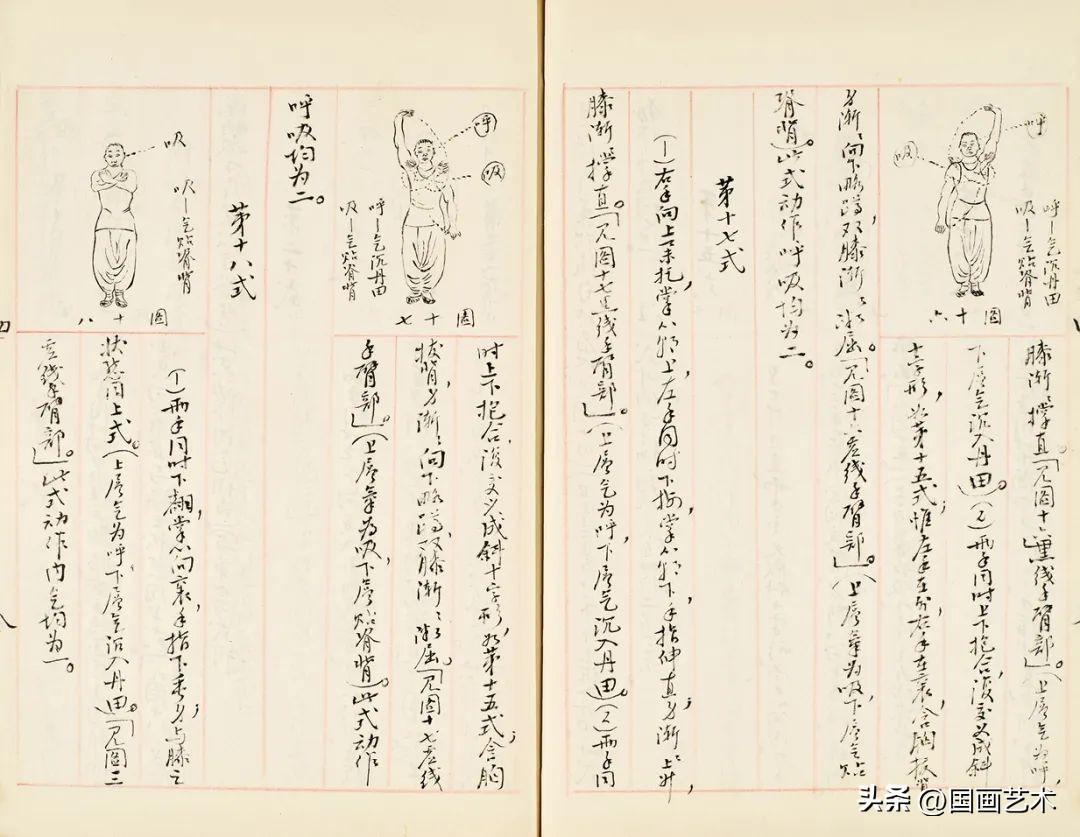 呼
吸
呼—气沉丹田
吸—气贴脊背
图十六
膝渐撑直。「见图十六黑线手臂部」。（上层气为呼，
下层气沉入丹田。(2)两手同时上下抱合，复交叉成斜
十字形，如第十五式，惟左手在外，右手在裏，含胸拔背
身渐渐向下略蹲，双膝渐渐渐屈。「见图十六虚线手臂部」。（上层气为吸，下层气贴
脊背。此式动作呼吸均为二。
第十七式
(一)右手向上来托，掌心朝上，左手同时下按，掌心朝下，手指伸直；身渐上升，
膝渐撑直。「见图十七黑线手臂部」。（上层气为呼，下层气沉入丹田。(2)两手同
呼
吸
呼—气沉丹田
吸—气贴脊背
图十七
时上下抱合，复交叉成斜十字形，如第十五式；含胸
拔背，身渐渐向下略蹲，双膝渐渐渐屈。「见图十七虚线
手臂部」。（上层气为吸，下层贴脊背。此式动作
呼吸均为二。
第十八式
吸
吸—气贴脊背
图十八
(一)两手同时下翻，掌心向裏，手指下垂；身与膝之
状态同上式。（上层气为呼，下层气沉入丹田。「见图三
虚线手臂部」。此式动作内气均为一。
头条 @国画艺术